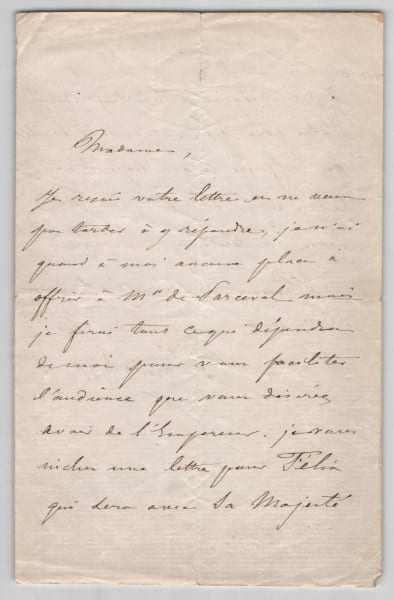 Madame,
Je reçois votre lettre et ne veux
pas tarder à y répondre, je n'ai
quand à moi aucune place à
offrir à Mr de Parceval mais
je ferai tout ce qui dépendra
de moi pour vous faciliter
l'audience que vous désirez
avoir de l'Empereur. je vous
une lettre pour Félix
qui sera avec Sa Majesté